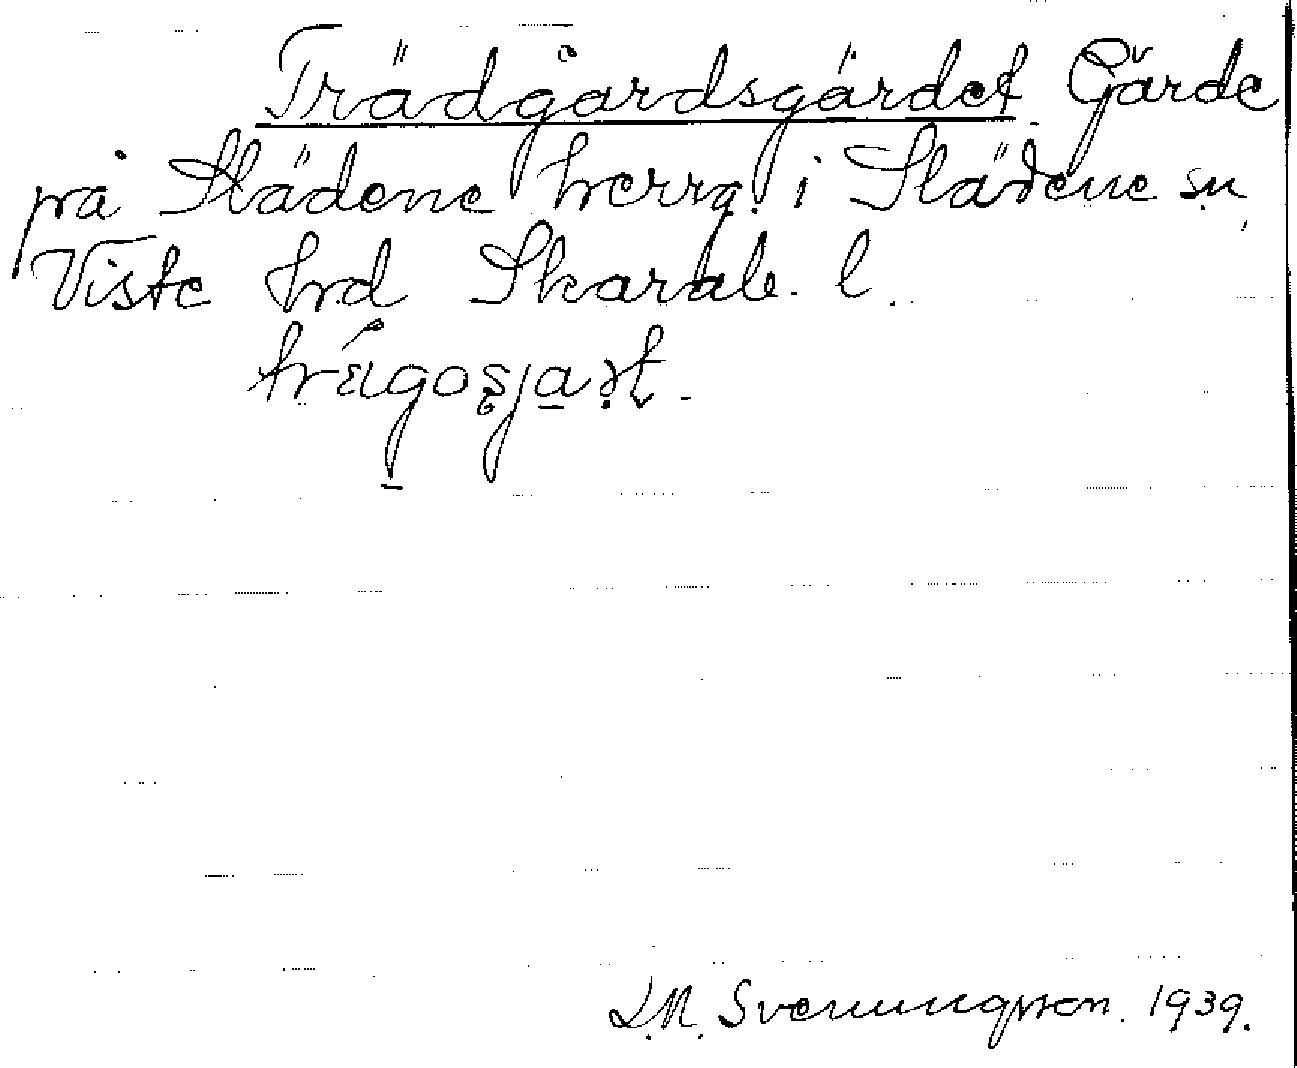 Trädgårdsgärdet Gärde
på Slädene herrg. i Slädene sn,
Viste hrd Skarab. l.
L.N. Svenungsson. 1939.